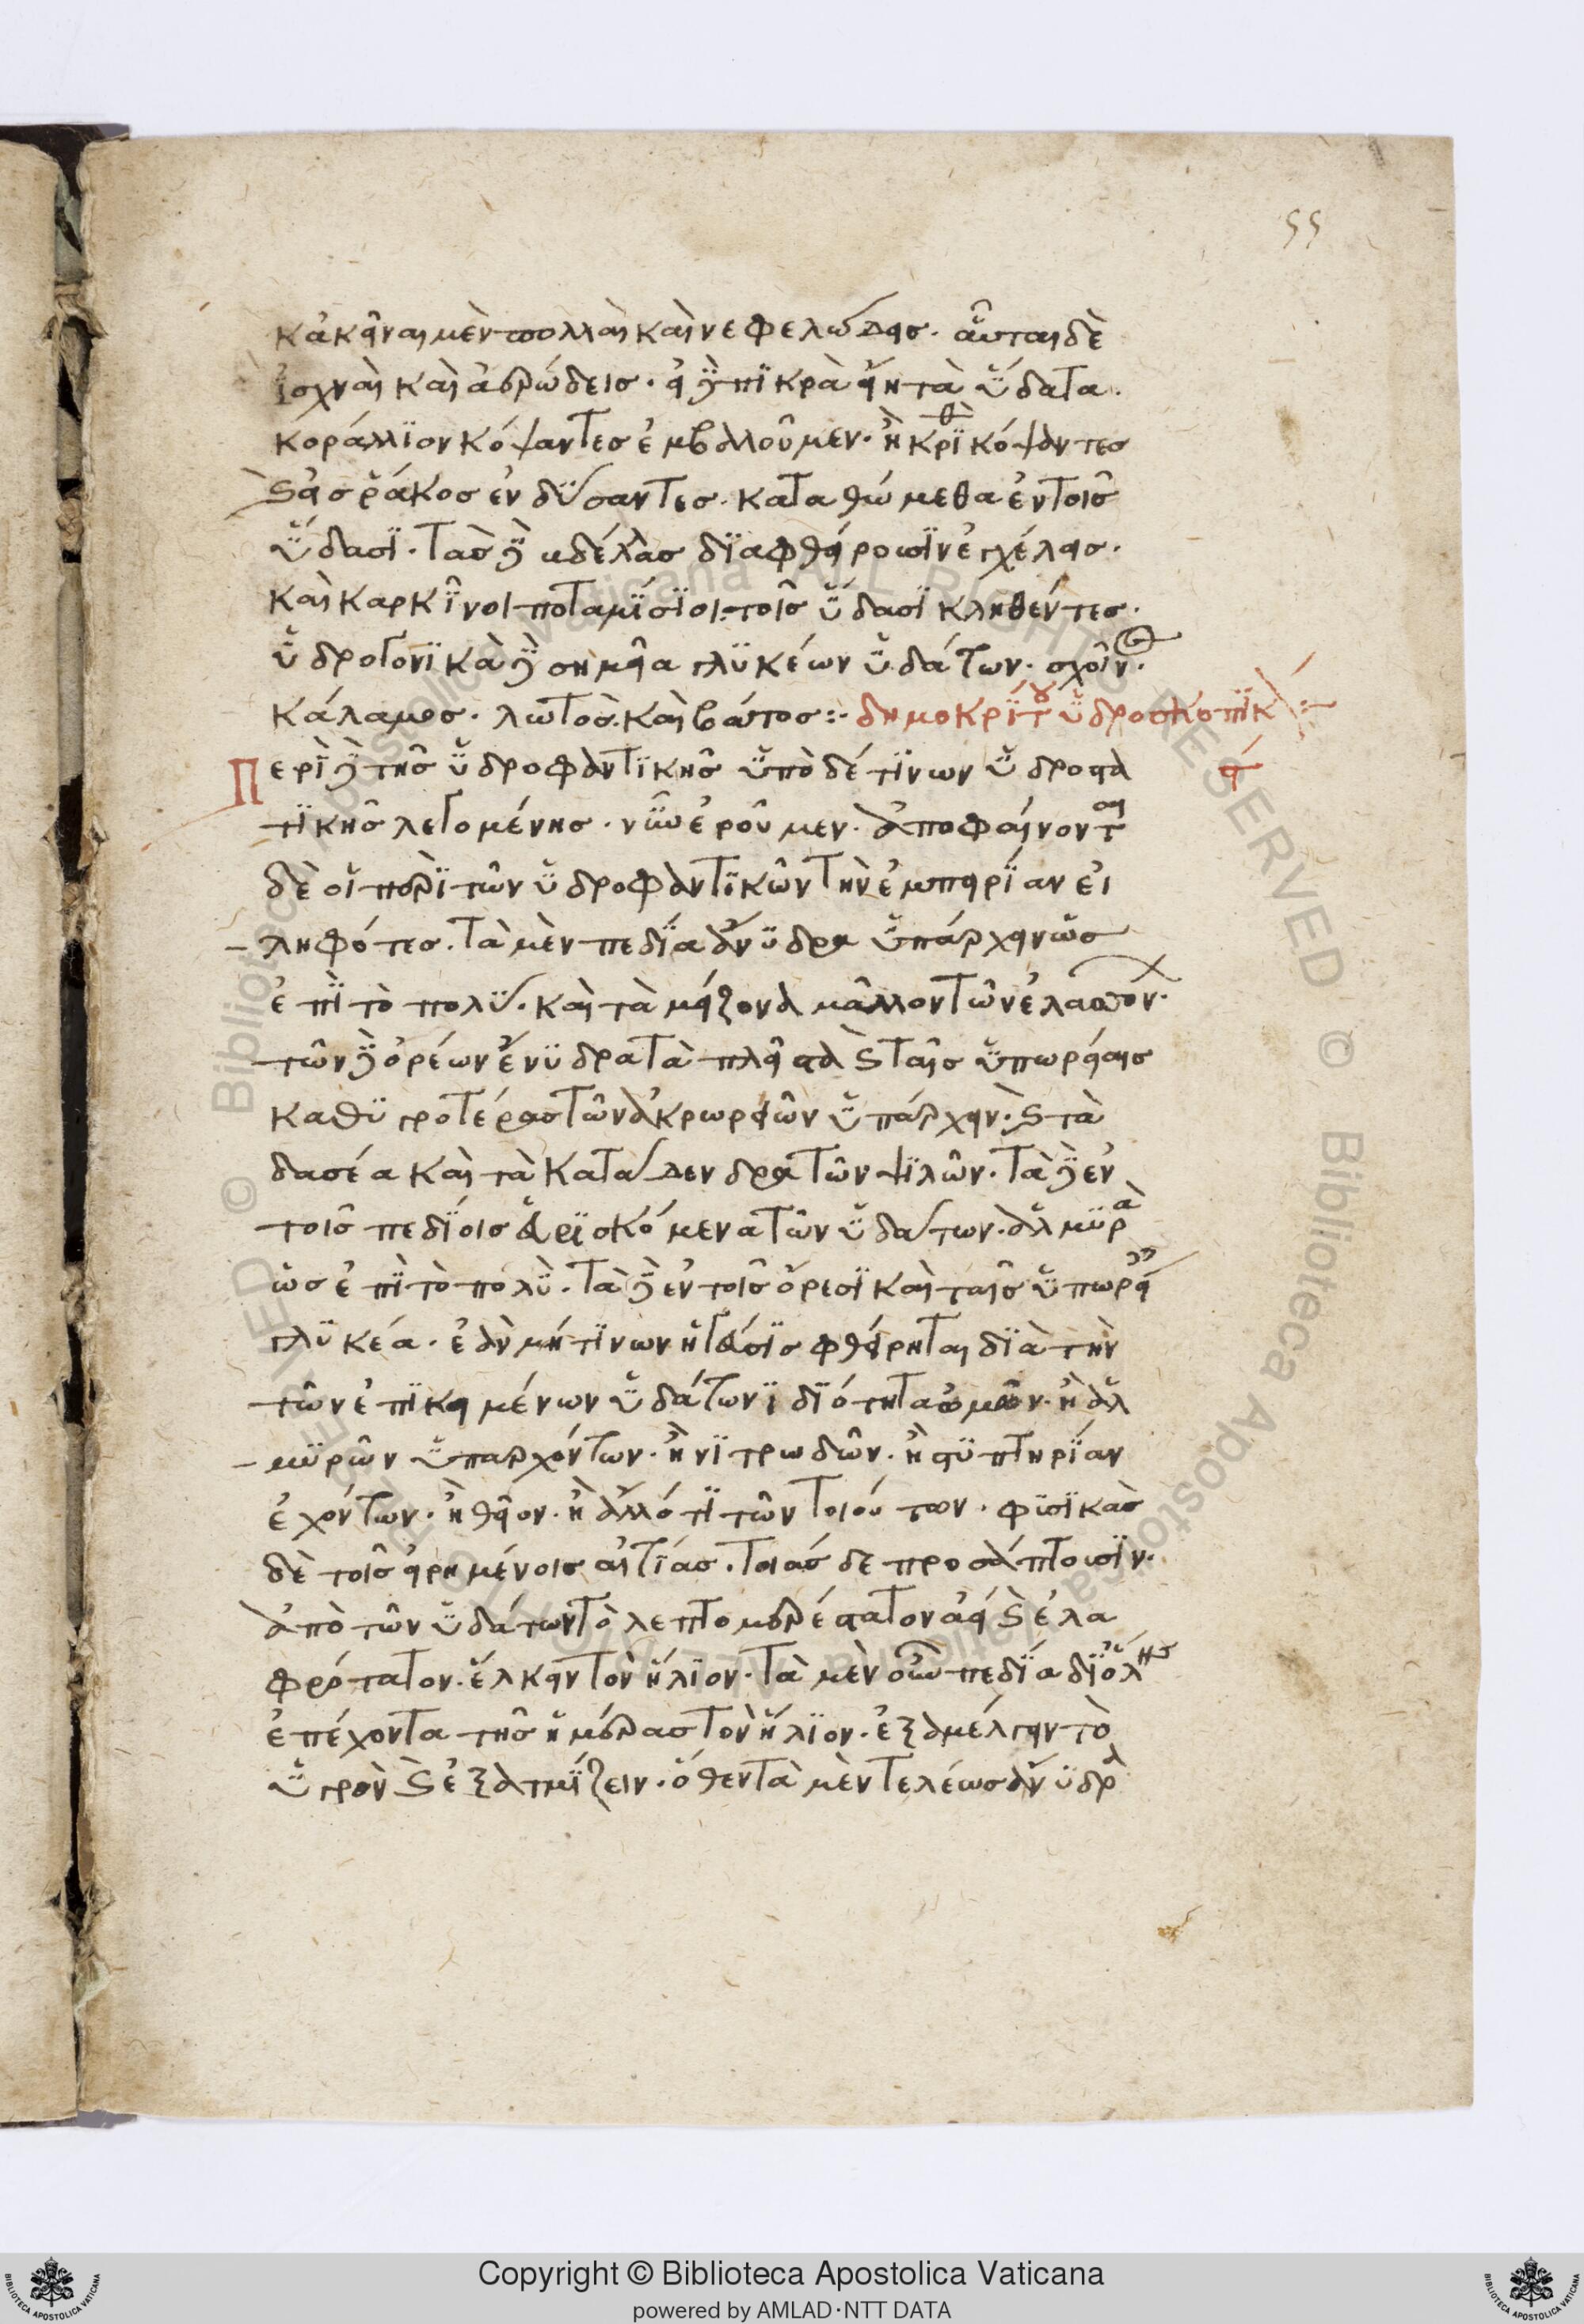 55
κἀκεῖναι μὲν πολλαὶ καὶ νεφελώδεισ. αὗται δὲ
ἰσχναὶ καὶ ἀερώδεισ. εἰ δὲ πϊκρὰ εἴη τὰ ὕδατα.
κοράλλϊον κόψαντεσ ἐμβαλλοῦμεν. ἢ κρϊθ κόψαντεσ
καὶ εἰσ ῥάκοσ ἐνδύσαντεσ. καταθώμεθα ἐν τοῖσ
ὕδασϊ. τὰσ δὲ βδέλλασ δϊαφθείρουσϊν ἐγχέλεισ.
καὶ καρκῖνοι ποταμίσϊοι τοῖσ ὕδασϊ κληθέντεσ.
ὑδρογονϊκὰ δὲ σημεῖα γλϋκέων ὑδάτων. σχοῖν.
κάλαμοσ. λωτὸσ. καὶ βάτοσ :· δημοκρίτου ὑδροσκοπϊκ :·
Περὶ δὲ τῆσ ὑδροφαντϊκῆσ ὑπὸ δέ τϊνων ὑδροστα
τϊκῆσ λεγομένησ. νῦν ἐροῦμεν. ἀποφαίνονται
δὲ οἱ περὶ τῶν ὑδροφαντϊκῶν τὴν ἐμπειρίαν εἰ
ληφότεσ. τὰ μὲν πεδία ἄνϋδρα ὑπάρχειν ὡσ
ἐπὶ τὸ πολύ. καὶ τὰ μείζονα μᾶλλον τῶν ἐλαττόν.
τῶν δὲ ὀρέων ἔνϋδρα τὰ πλεῖστα καὶ ταῖσ ὑπωρείαισ
καθϋγροτέρασ τῶν ἀκρωρειῶν ὑπάρχειν. καὶ τὰ
δασέα καὶ τὰ κατάδενδρα τῶν ψϊλῶν. τὰ δὲ ἐν
τοῖσ πεδίοισ εὑρϊσκόμενα τῶν ὑδάτων. ἁλμϋρὰ
ὡσ ἐπὶ τὸ πολὺ. τὰ δὲ ἐν τοῖσ ὄρεσϊ καὶ ταῖσ ὑπωρεί
γλϋκέα. ἐὰν μή τϊνων ἡ γεῦσϊσ φθείρηται δϊὰ τὴν
τῶν ἐπϊκειμένων ὑδάτων ἰδϊότητα ἡμῶν. ἢ ἁλ
μϋρῶν ὑπαρχόντων. ἢ νϊτρωδῶν. ἢ στϋπτηρίαν
ἐχόντων. ἢ θεῖον. ἢ ἄλλό τϊ τῶν τοιούτων. φϋσϊκὰσ
δὲ τοῖσ εἰρημένοισ αἰτίασ. τοιάσδε προσάπτουσϊν.
ἀπὸ τῶν ὑδάτων τὸ λεπτομερέστατον ἀεί καὶ ἐλα
φρότατον. ἕλκειν τὸν ἥλϊον. τὰ μὲν οὖν πεδία δϊ' ὅλησ
ἐπέχοντα τῆσ ἡμέρασ τὸν ἥλϊον. ἐξαμέλγειν τὸ
ὑγρὸν καὶ ἐξατμίζειν. ὅθεν τὰ μὲν τελέωσ ἄνϋδρα
Copyright © Biblioteca Apostolica Vaticana
powered by AMLAD·NTT DATA